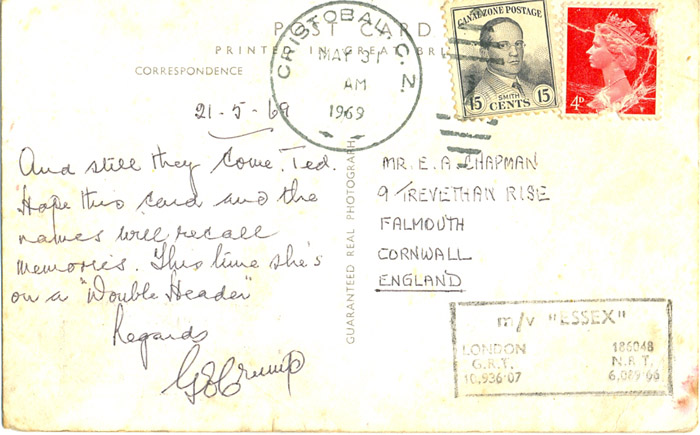 POST CARD
PRINTED IN GREAT BRI
CORRESPONDENCE
CRISTOBAL, C. Z.
MAY 31
AM
1969
CANAL ZONE POSTAGE
SMITH
15 CENTS 15
4P
21-5-69
And still they come, Ted.
Hope this card and the
names will recall
memories. This time she's
on a "Double Header"
Regards
GUARANTEED REAL PHOTOGRAPH
MR. E. A. CHAPMAN
9 TREVETHAN RISE
FALMOUTH
CORNWALL
ENGLAND
m/v "ESSEX"
LONDON 186048
G.R.T. N.R.T.
10,936·07